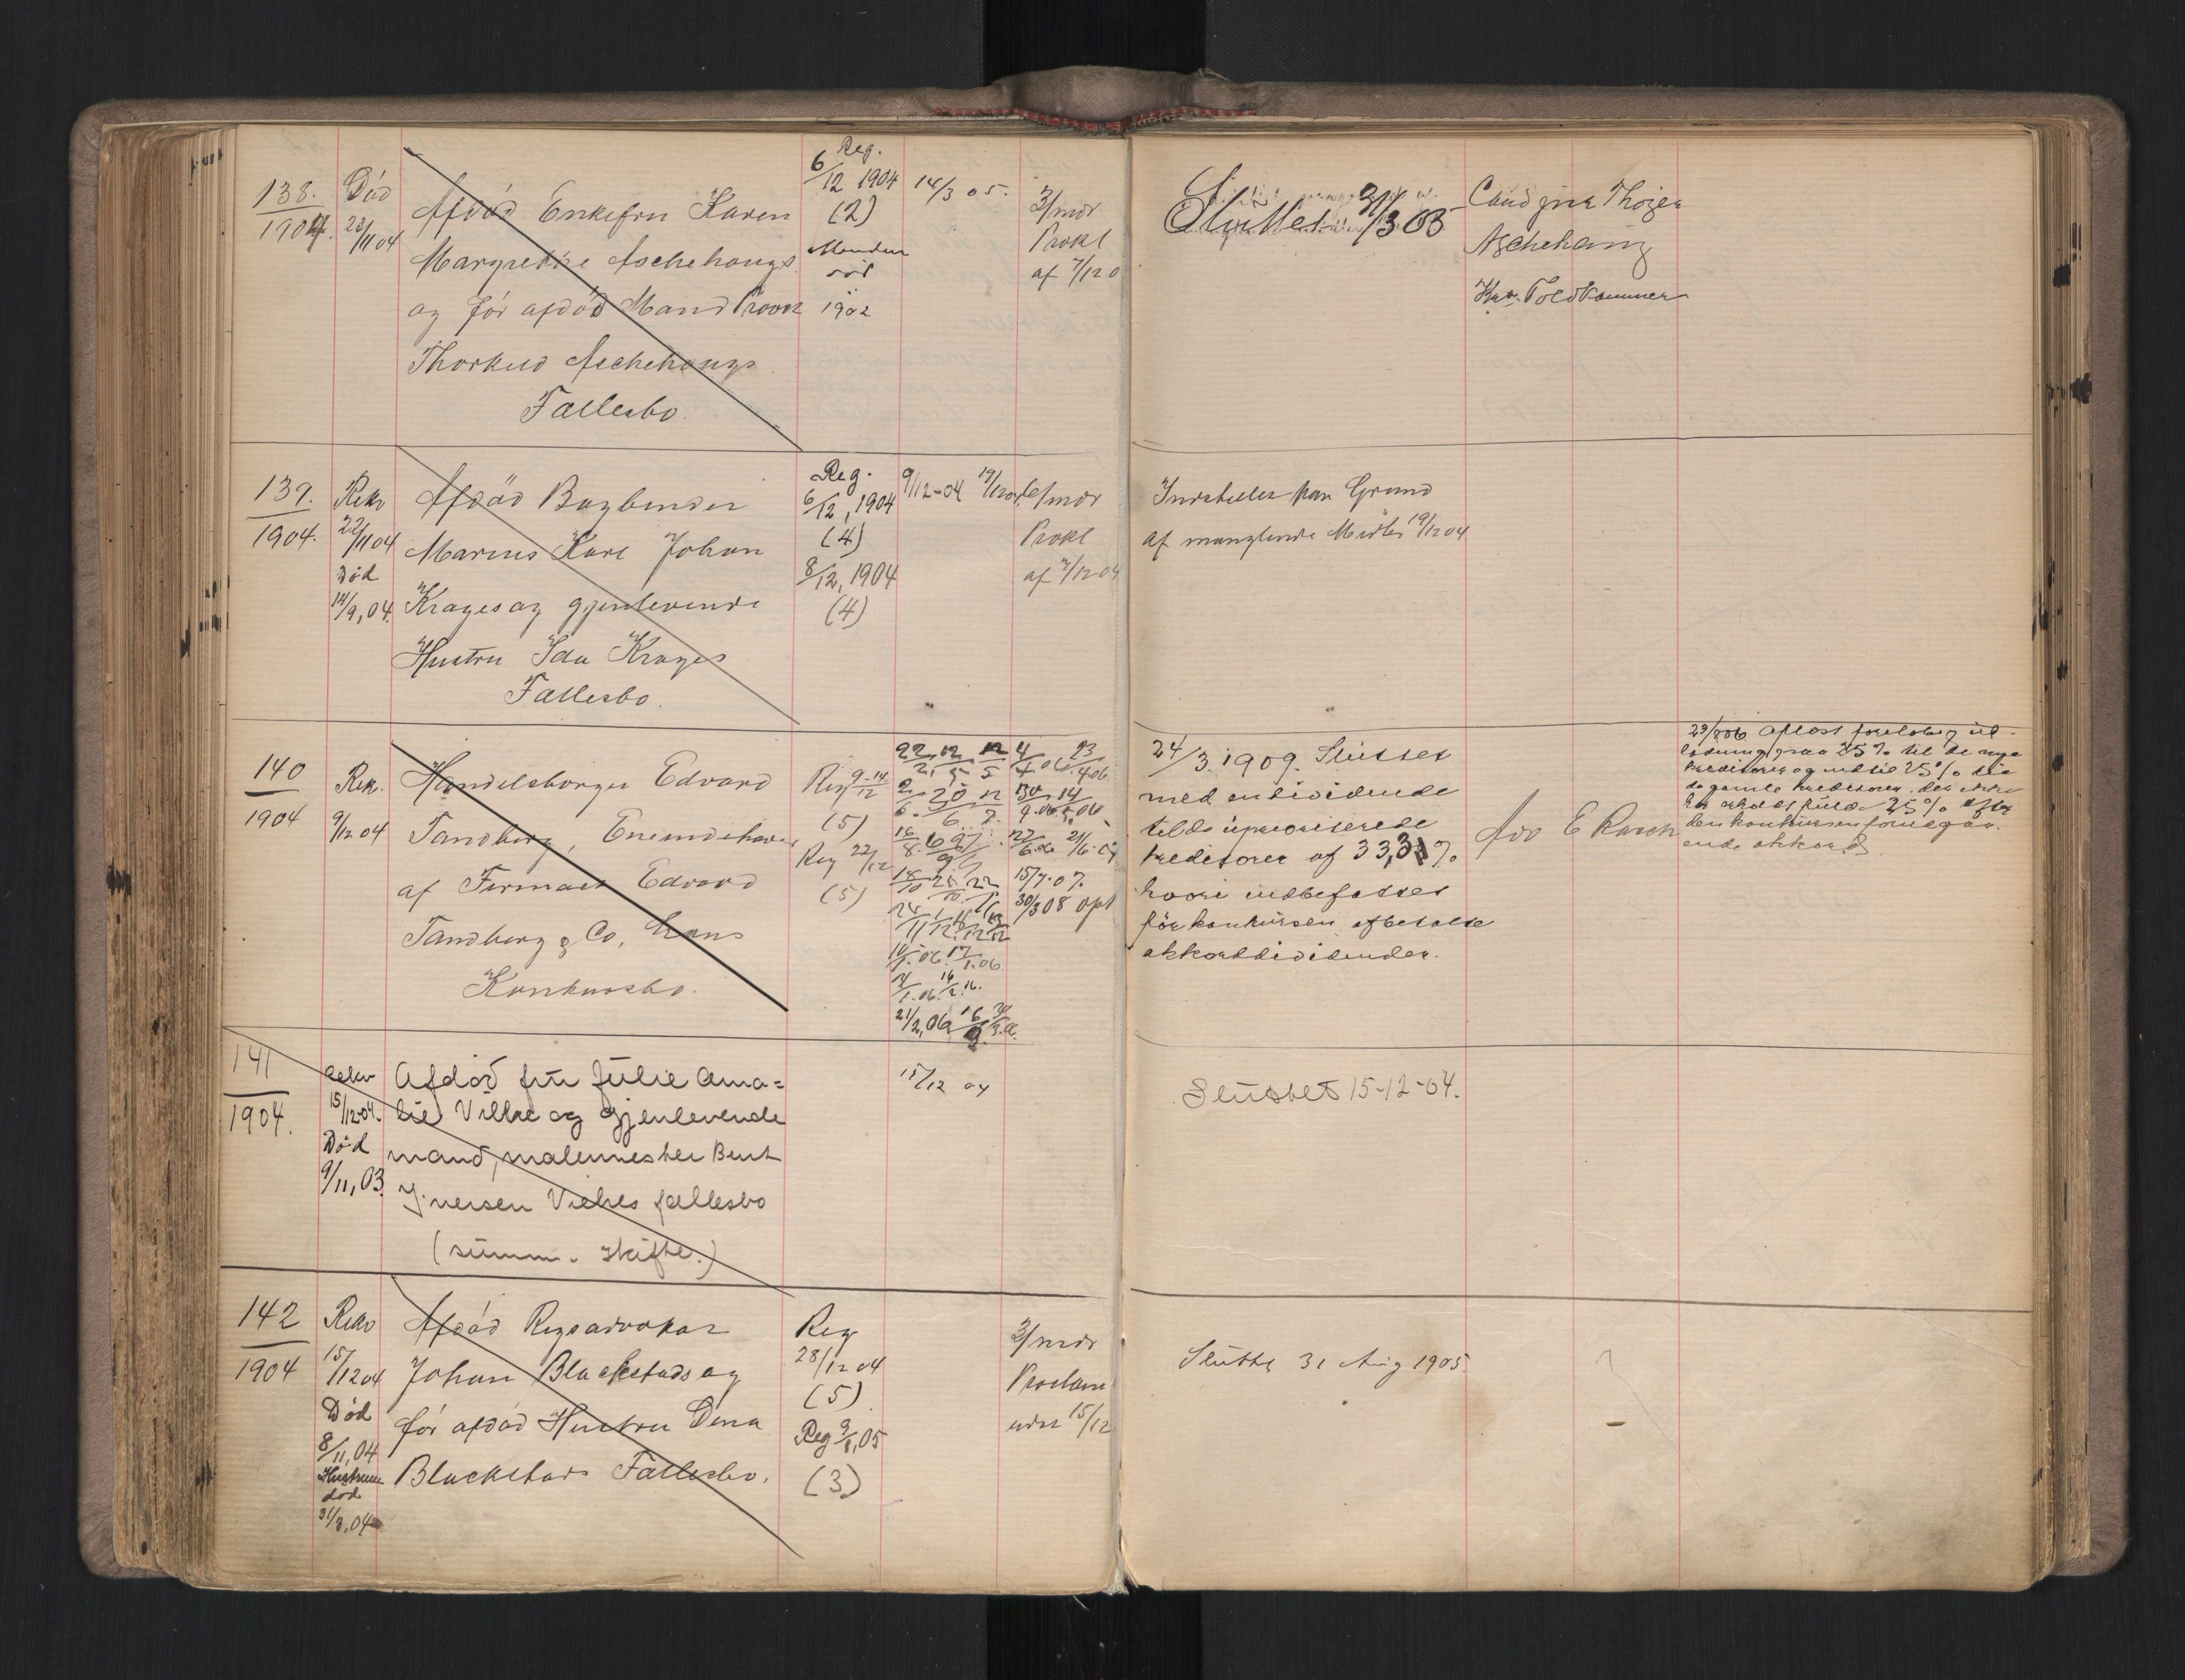 138.
1904.
Död
23/11 04
Afdöd Enkefru Karen
Margrethe Aschehougs
og för afdöd Mand Provst
Thorkild Aschehougs
Fællesbo.
Reg.
6/12 1904
(2)
Manden
död
1902
14/3 05.
3/mdr
Prokl
af 7/12 0
Sluttet 31/3 05
Cand jur Thöger
Aschehoug
Kra. Toldkammer
139.
1904.
Rekv
22/11 04
Död
14/9, 04.
Afdöd Bogbinder
Marius Karl Johan
Krages og gjenlevende
Hustru Ida Krages
Fællesbo.
Reg.
6/12, 1904
(4)
8/12, 1904
(4)
9/12-04 19/12 04
6/mdr
Prokl
af 7/12 04
Indstillet paa Grund
af manglende Midler 19/12 04
140
1904
Rek.
9/12 04
Handelsborger Edvard
Tandberg, Eneindehaver
af Firmaet Edvard
Tandberg & Co,
Konkursbo.
Reg 9-14/12
(5)
Reg 22/12
(5)
15/7.07.
30/3 08 opt
21/2, 06
24/3. 1909. Sluttet
med en dividende
til de uprioriterede
kreditorer af 33,3 %
hvori indbefattes
för konkursen afbetalte
akkorddividender.
Adv E Rasch
afløst foreløbig ud-
lodning paa 25 % til de nye
kreditorer og indtil 25 % til
de gamle kreditorer, der ikke
har erholdt fulde 25 % efter
den konkursen foregaa-
ende akkord.
141
1904.
Rekv
15/12-04.
Död
9/11, 03.
Afdöd fru Julie Ama=
lie Vilke og gjenlevende
mand, malermester Bent
Iversen Vilkes fællesbo
(summ. skifte.)
15/12 04
Sluttet 15-12-04.
142
1904
Rekv
15/12 04
Död
8/11, 04
Hustruen
död
31/3, 04
Afdöd Regsadvokat
Johan Blackstads og
för afdöd Hustru Dina
Blackstads Fællesbo.
Reg
28/12 04
(5)
Reg 9/1, 05
(3)
3/mdr
Proclam
udst 15/12
Sluttet 31 Aug 1905.